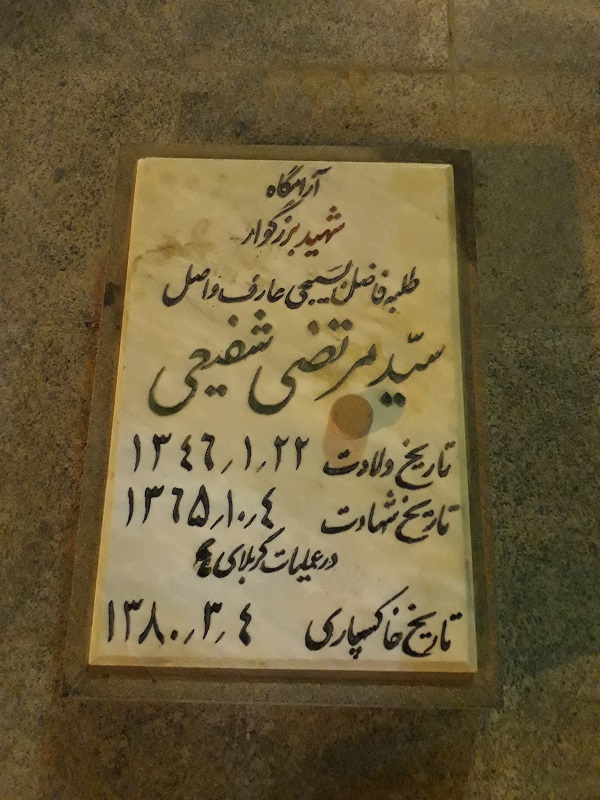 آرامگاه
شهید بزرگوار
طلبه فاضل بسیجی عارف واصل
سیّد مرتضی شفیعی
تاریخ ولادت ١٣٤٦٫١٫٢٢
تاریخ شهادت ١٣٦٥٫١٠٫٤
در عملیات کربلای ٤
تاریخ خاکسپاری ١٣٨٠٫٣٫٤